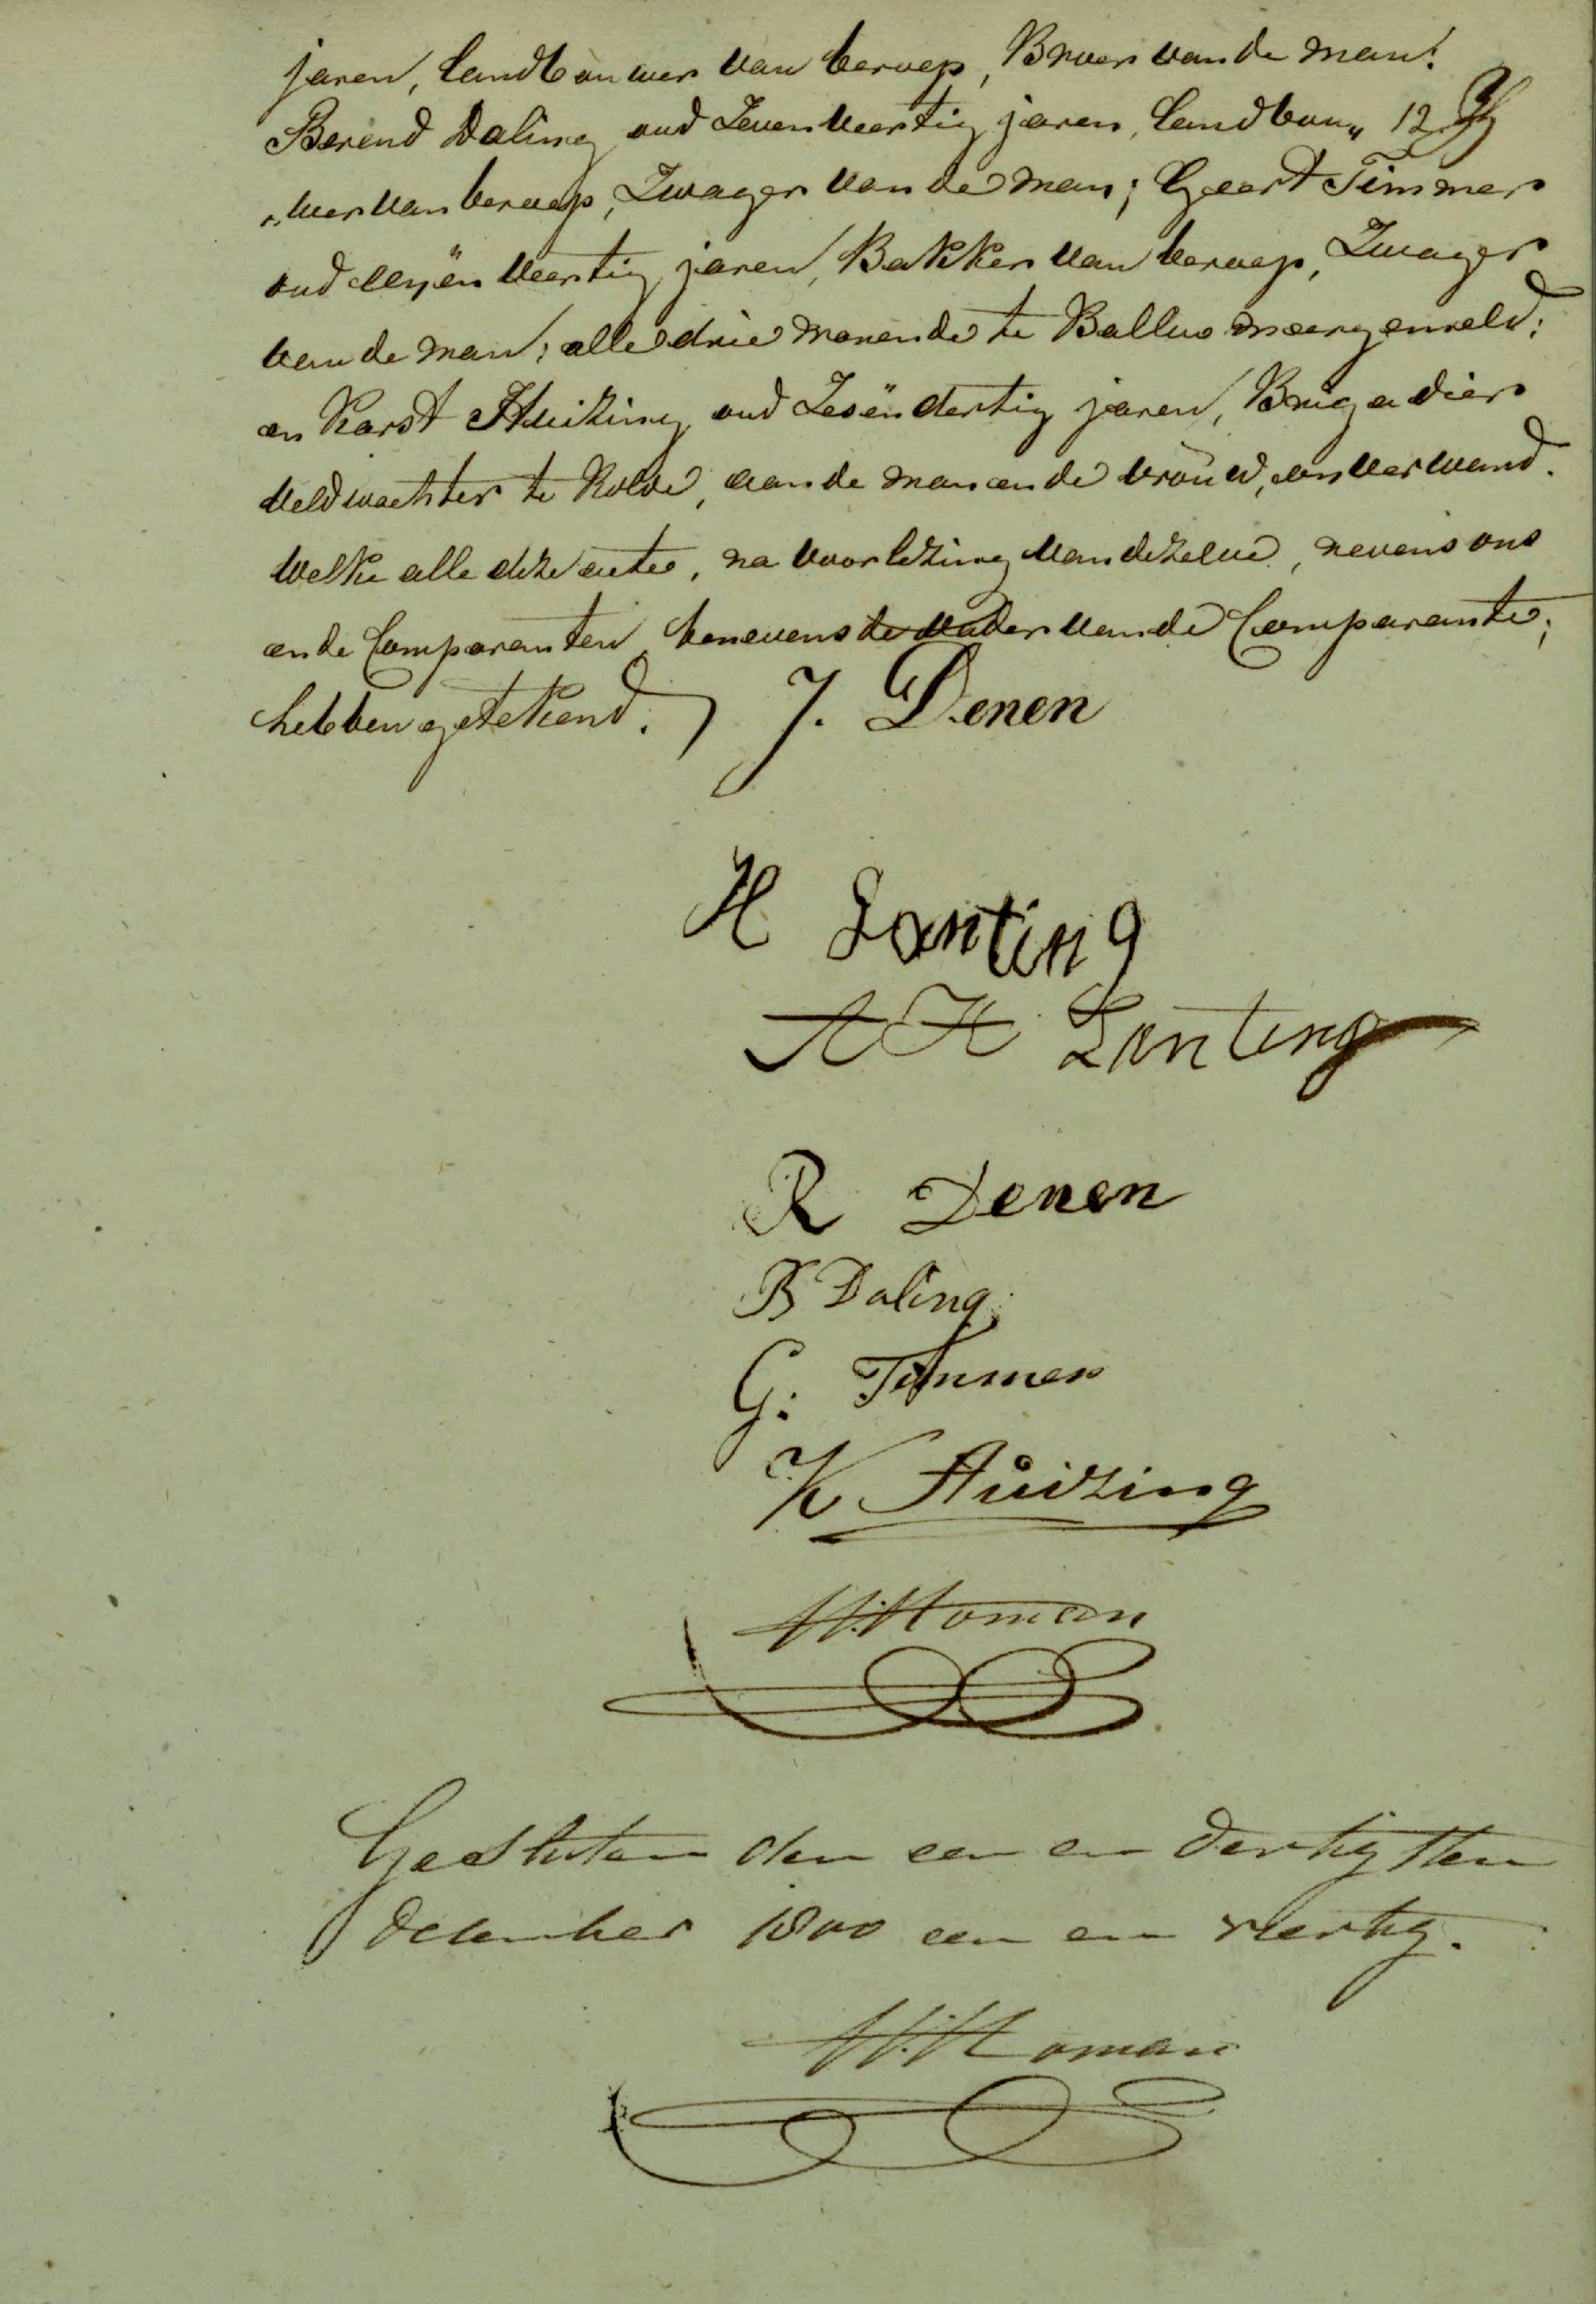 jaren, landbouwer van beroep, Broer van de man:
Berend Daling oud Zeven Veertig jaren, landbou„ 12
„wer van beroep, Zwager van de man; Geert Timmer
oud een veertig jaren, Bakker van beroep, Zwager
van de man; alle drie wonende te Balloo meergemeld;
en Karst Huizing oud Zesëndertig jaren, Brigadier
Veldwachter te Rolde, aan de man en de vrouw, onverwand.
Welke alle deze acte, na voorlezing van dezelve, nevens ons
en de Comparanten benevens de vader van de Comparante;
hebben getekend. J. Denen
H Lanting
A H Lanting
R Denen
B Daling
G: Timmer
K Huizing
H. Homan
Gesloten den een en dertigsten
december 1800 een en veertig.
H. Homan